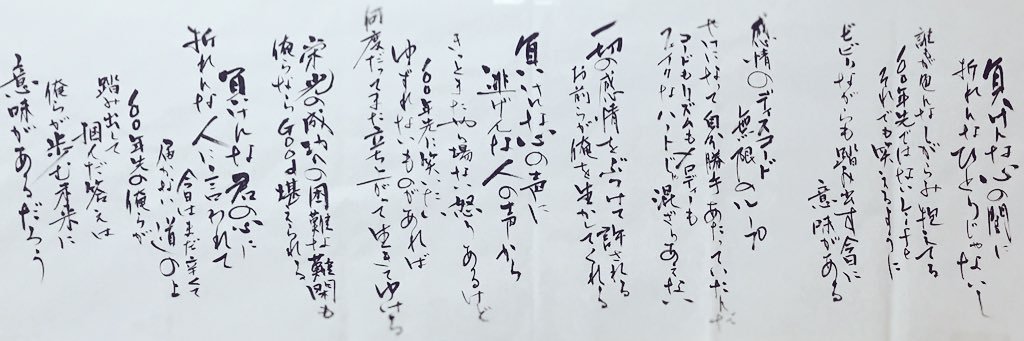 負けんな心の闇に
折れんなひとりじゃないし
誰もが色んなしがらみ抱えてる
100年先ではないLife
それでも笑えるように
ビビりながらも踏み出す今に
意味がある
感情のディスコード
無限のループ
やけになって自分勝手あたっていたんだ
コードもリズムもメロディーも
フェイクなハートじゃ混ざりあえない
一切の感情をぶつけて許される
お前らが俺を生かしてくれる
負けんな心の声に
逃げんな人の声から
きっとまだやり場ない怒りあるけど
100年先に笑いたい
ゆずれないものがあれば
何度だってまた立ち上がって生きてゆける
栄光の成功の困難な難関も
俺らならGoodで堪えられる
負けんな君の心に
折れんな人に言われて
今日はまだ辛くて
届かない道の上
100年先の俺らが
踏み出して
掴んだ答えは
俺らが歩む未来に
意味があるだろう